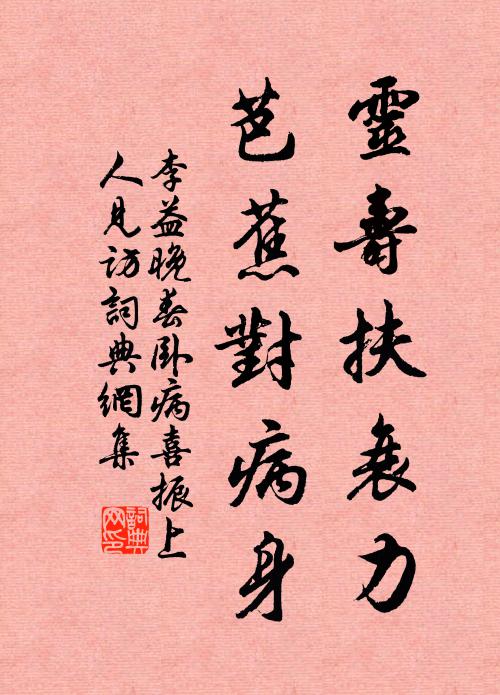 靈壽扶衰力
芭蕉對病身
李益晚春臥病喜振上
人見訪詞典網集
詞典網印